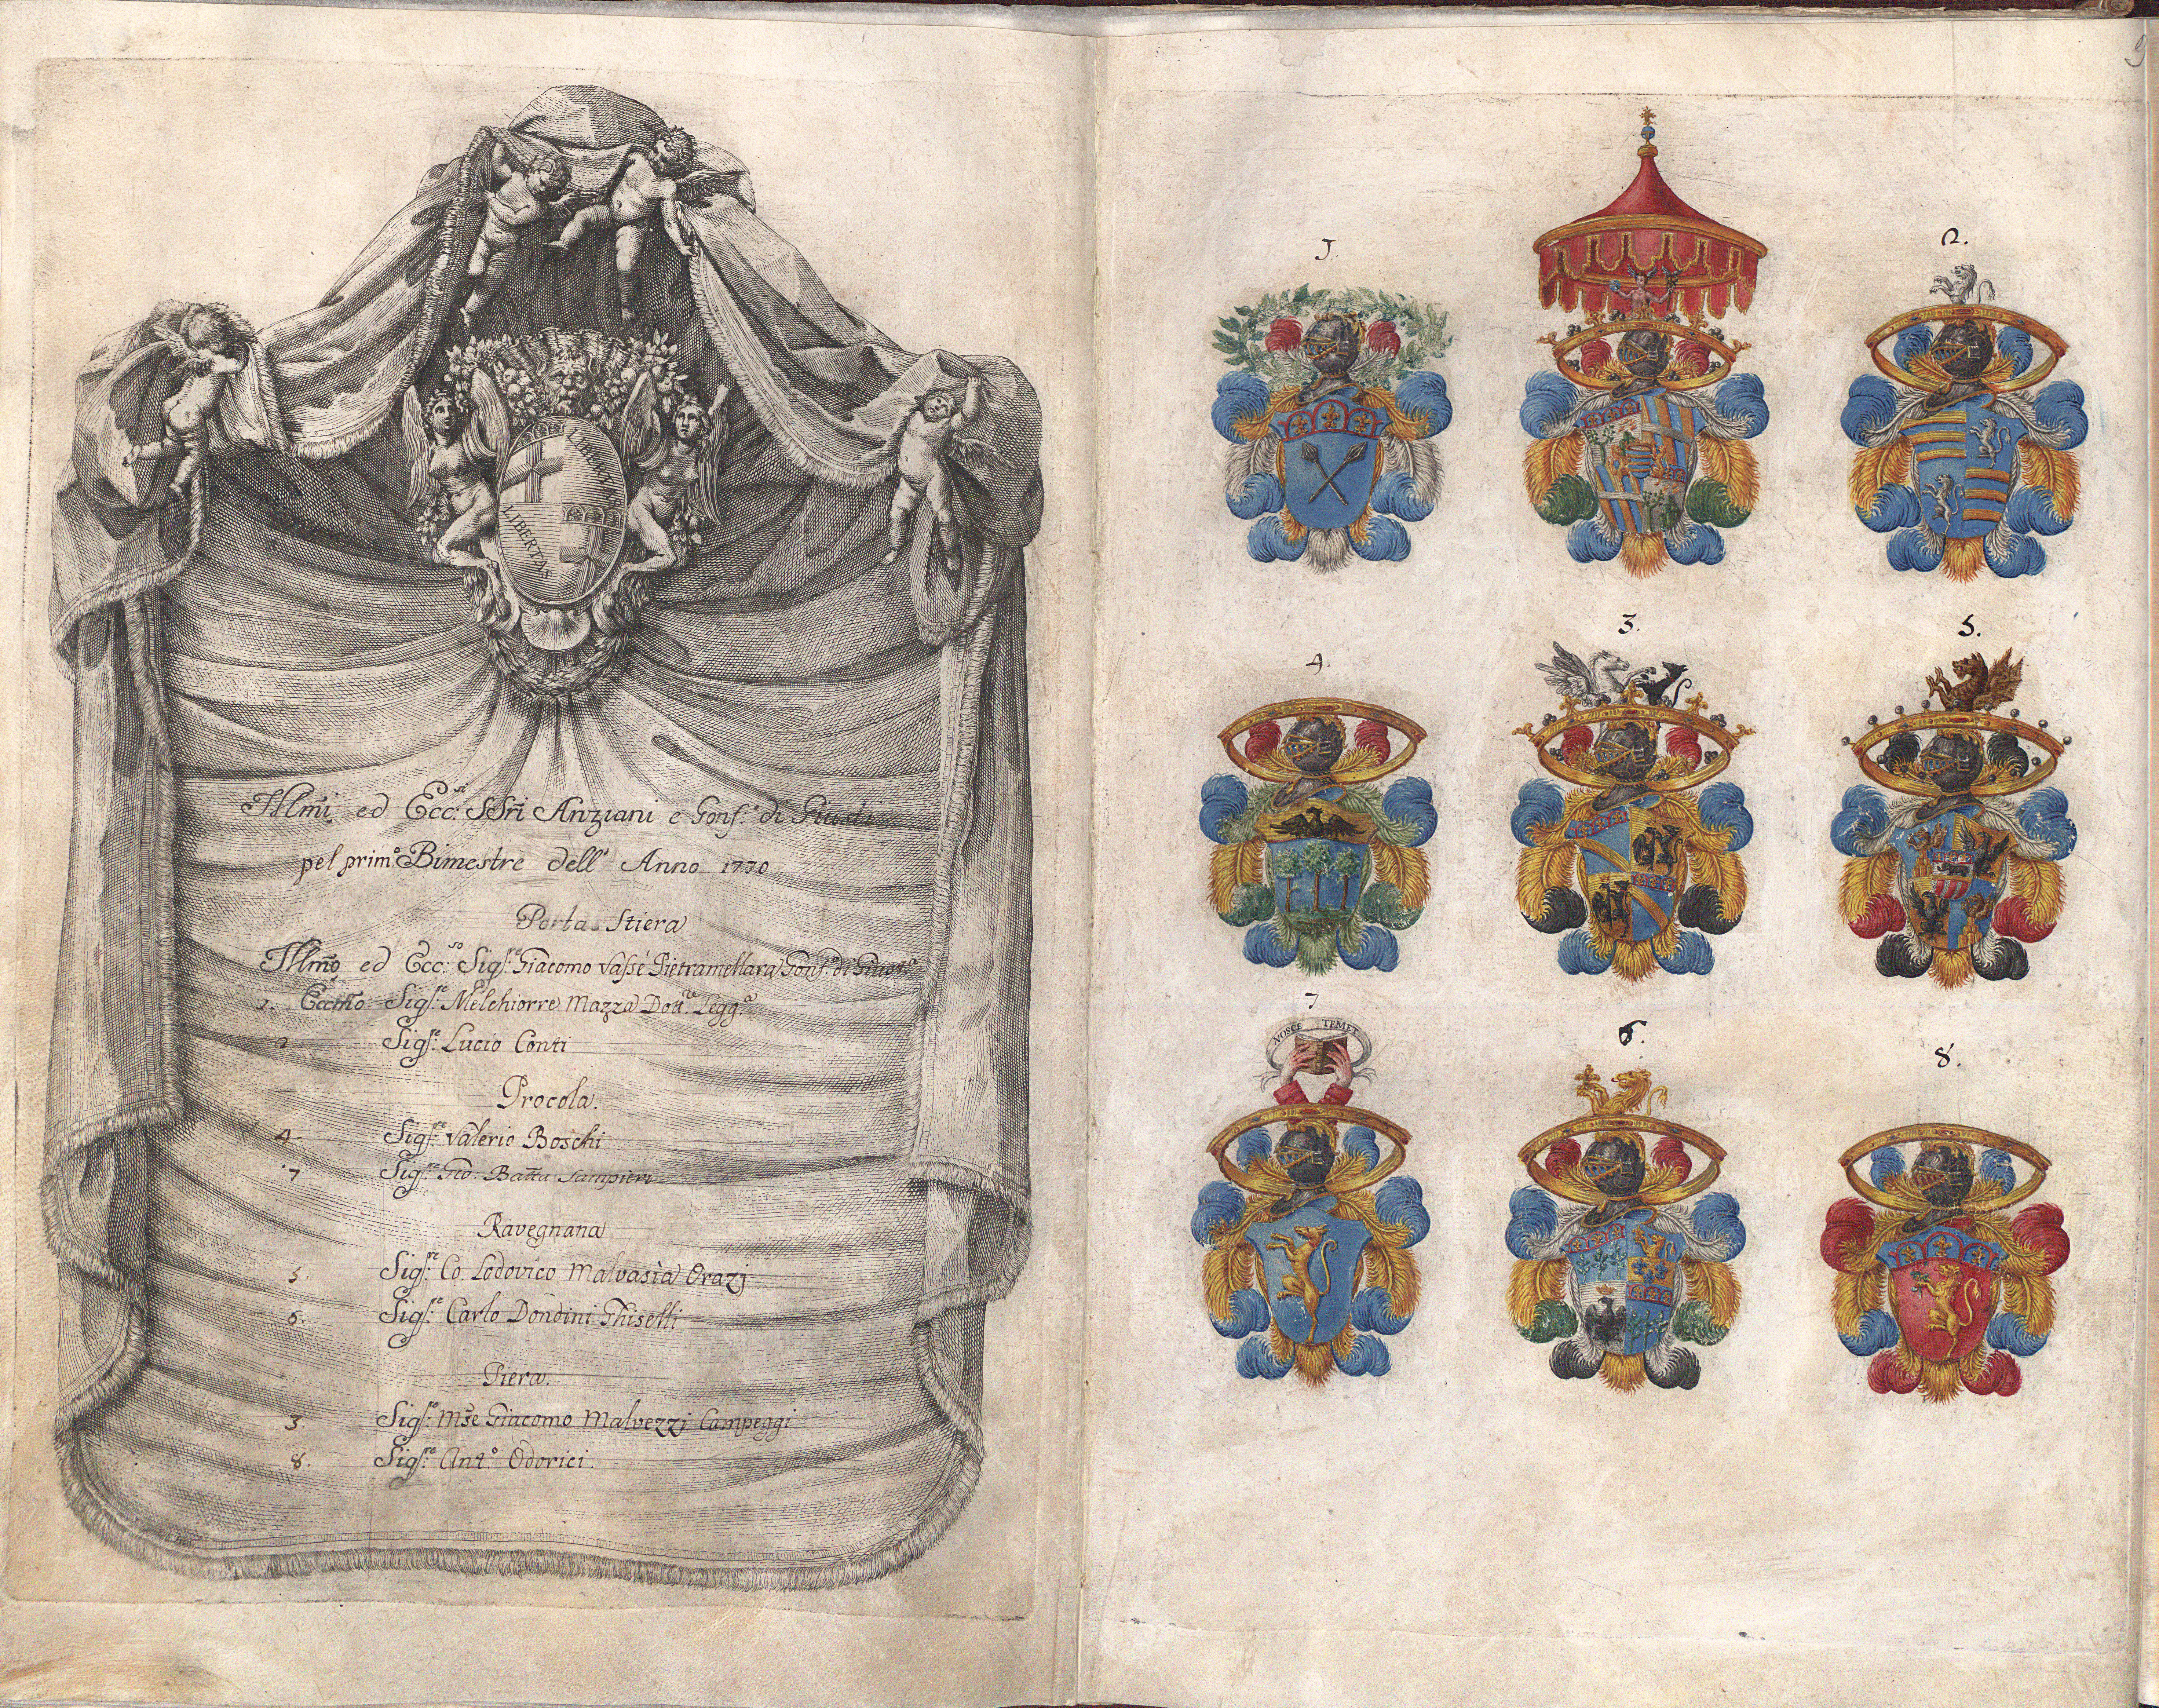 LIBERTAS
LIBERTAS
Illm̃i ed Ecc:si SSri Anziani e Gonf:i di Giusti
pel prim:o Bimestre dell' Anno 1770
Porta Stiera
Illmo ed Ecc:so Sigre: Giacomo Vassè Pietramellara Gonf:e di Giust:a
1. Eccmo Sigre: Melchiorre Mazza Dott:re Legg:a
2 Sigre: Lucio Conti
Procola.
4. Sigre: Valerio Boschi
7 Sigre: Gio: Batta Sampieri
Ravegnana
5. Sigre: Co. Lodovico Malvasia Orazj
6. Sigre: Carlo Dondini Ghiselli
Piera.
3. Sigre: Mse Giacomo Malvezzj Campeggi
8. Sigre: Ant:o Odorici.
9
1.
2.
4.
3.
5.
7
NOSCE TEMET
6.
8.